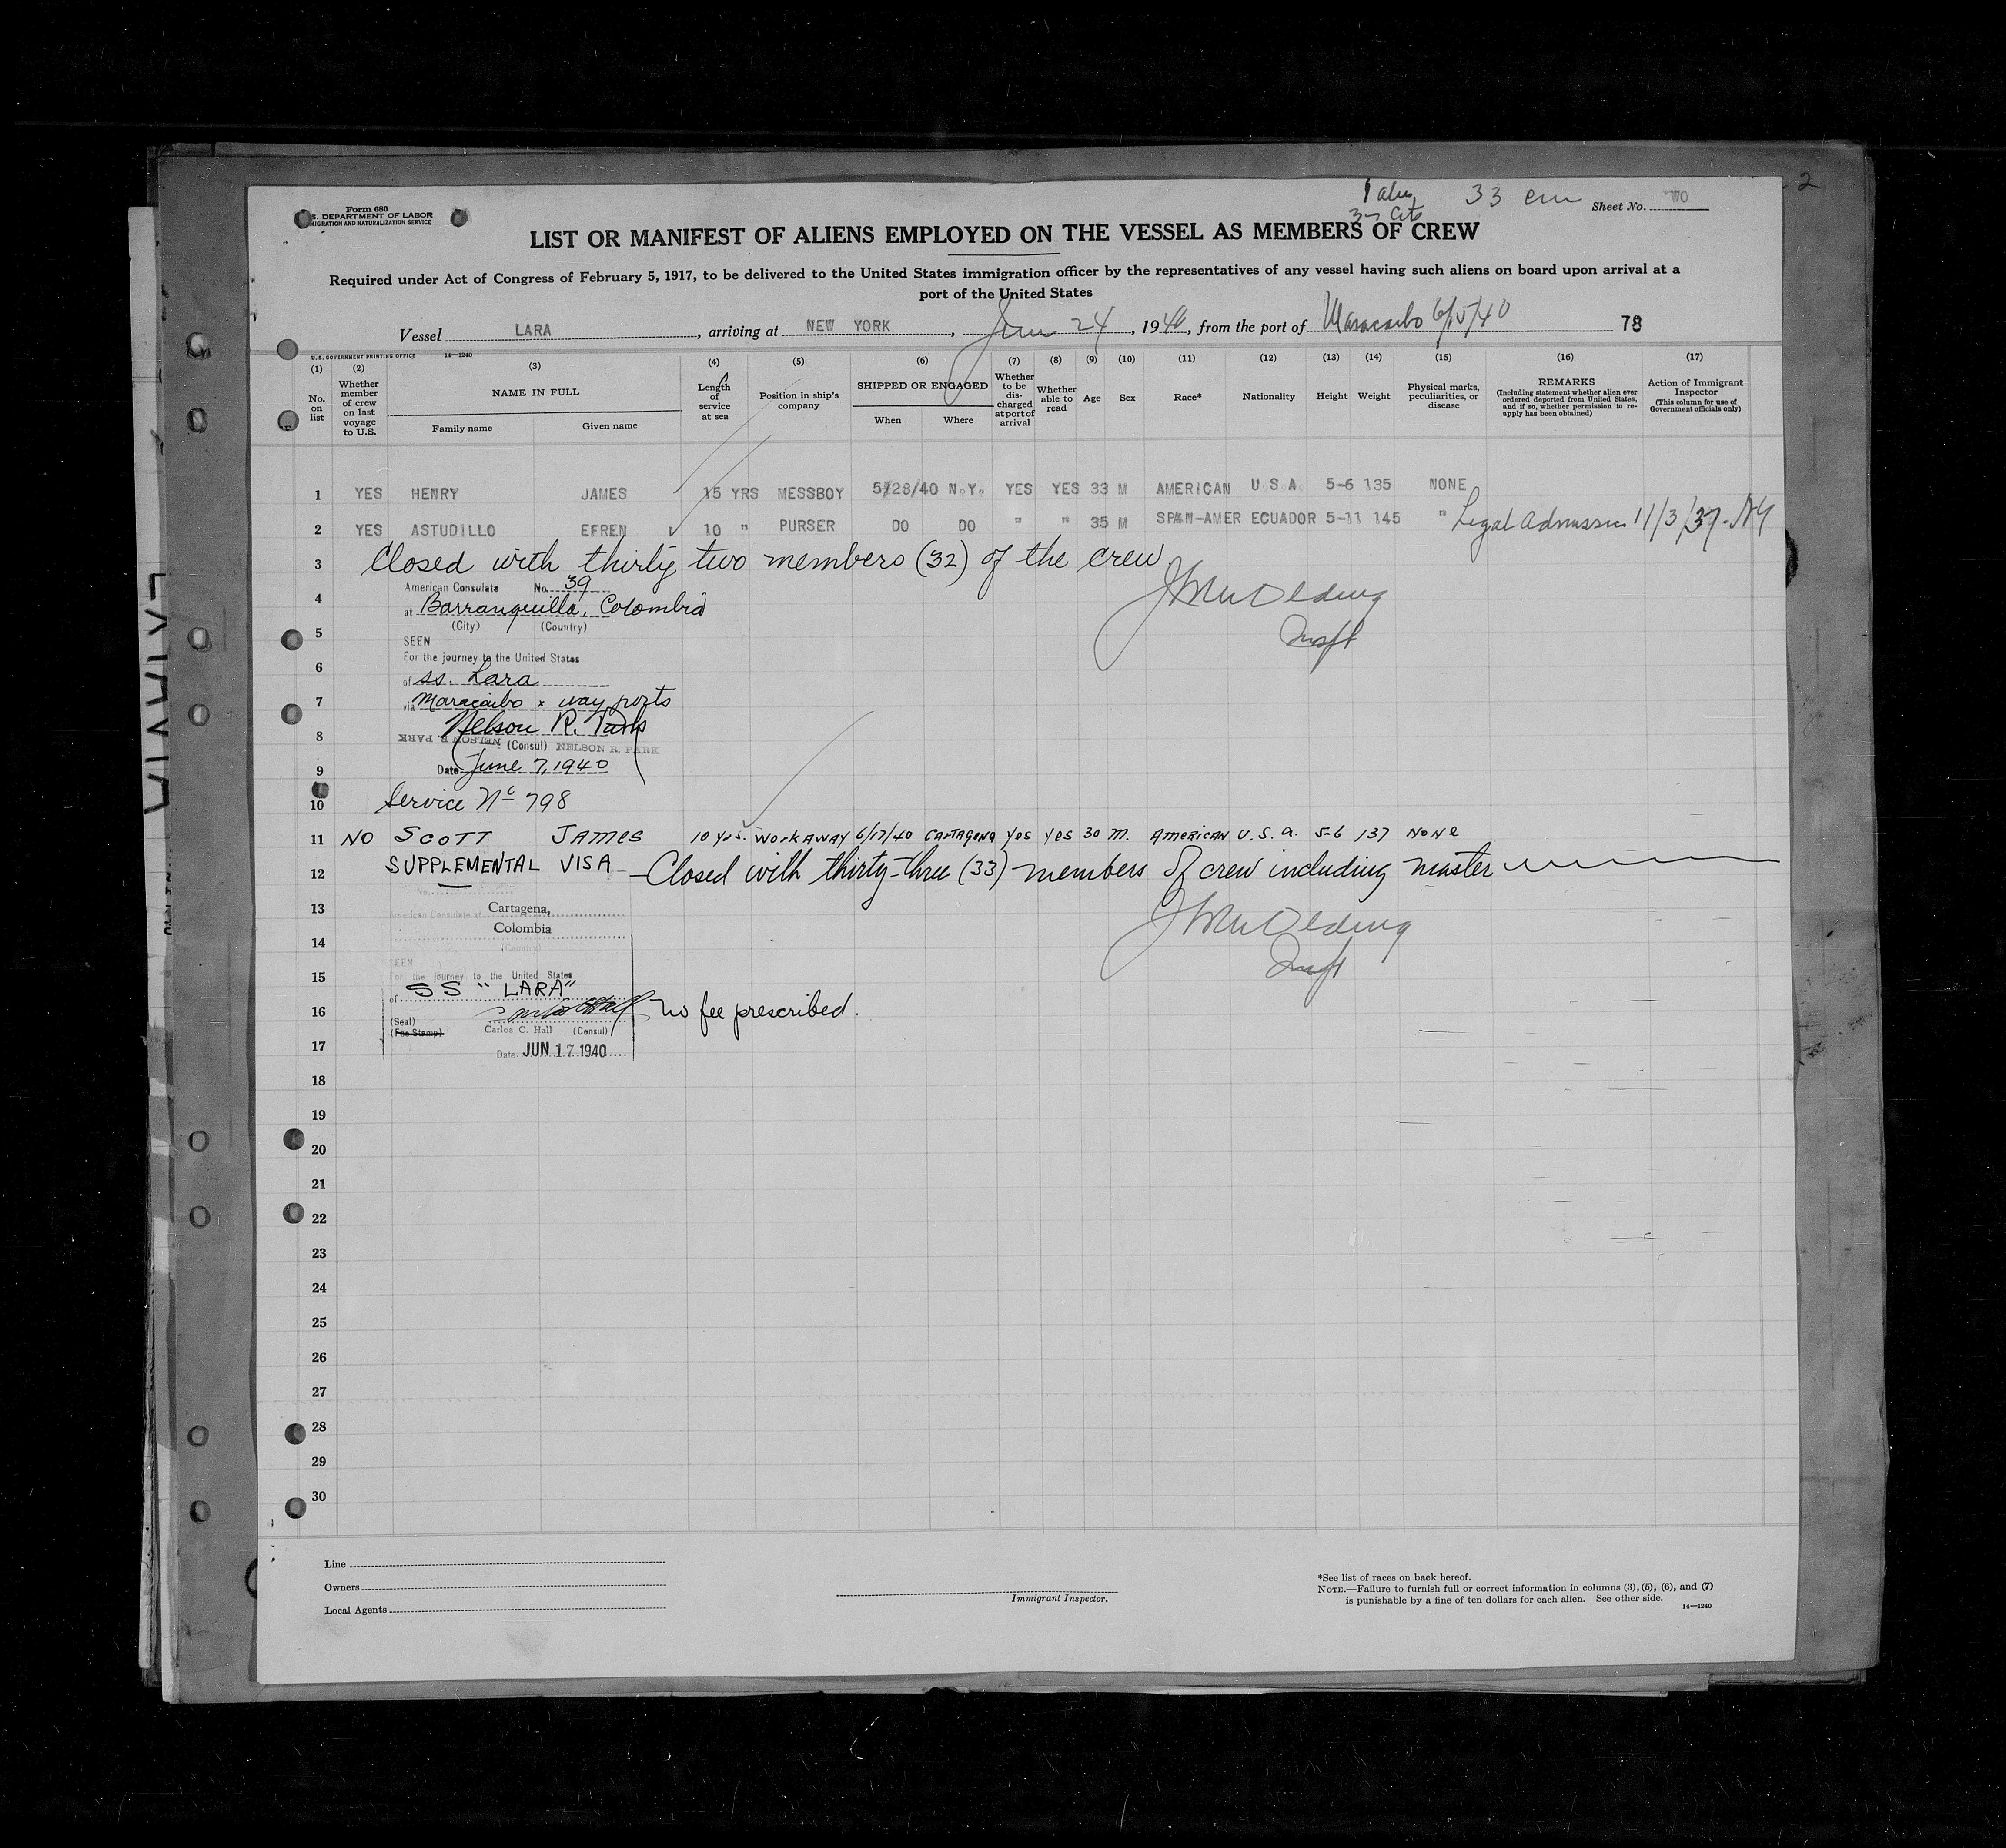 Form 680
S. DEPARTMENT OF LABOR
MIGRATION AND NATURALIZATION SERVICE
33
2
Sheet No. WO
LIST OR MANIFEST OF ALIENS EMPLOYED ON THE VESSEL AS MEMBERS OF CREW
Required under Act of Congress of February 5, 1917, to be delivered to the United States immigration officer by the representatives of any vessel having such aliens on board upon arrival at a
port of the United States
Vessel LARA, arriving at NEW YORK, June 24, 1940, from the port of Maracaibo 6/15/40 78
U.S. GOVERNMENT PRINTING OFFICE 14—1240
(1) No. on list
(2) Whether member of crew on last voyage to U.S.
(3) NAME IN FULL
Family name Given name
(4) Length of service at sea
(5) Position in ship's company
(6) SHIPPED OR ENGAGED
When Where
(7) Whether to be discharged at port of arrival
(8) Whether able to read
(9) Age
(10) Sex
(11) Race*
(12) Nationality
(13) Height
(14) Weight
(15) Physical marks, peculiarities, or disease
(16) REMARKS
(Including statement whether alien ever ordered deported from United States, and if so, whether permission to re-apply has been obtained)
(17) Action of Immigrant Inspector
(This column for use of Government officials only)
1 YES HENRY JAMES 15 YRS MESSBOY 5/28/40 N.Y. YES YES 33 M AMERICAN U.S.A. 5-6 135 NONE
2 YES ASTUDILLO EFREN 10 " PURSER DO DO " " 35 M SPAN-AMER ECUADOR 5-11 145 " Legal Admission 11/3/37 - NY
3 Closed with thirty two members (32) of the crew
American Consulate No. 39
4 at Barranquilla, Colombia
(City) (Country)
5 SEEN
For the journey to the United States
6 of ss. Lara
7 via Maracaibo x way ports
8 Nelson R. Park
NELSON R. PARK (Consul) NELSON R. PARK
9 Date June 7, 1940
10 Service No 798
11 NO SCOTT JAMES 10 yrs. WORKAWAY 6/17/40 CARTAGENA Yes Yes 30 M. AMERICAN U.S.A. 5-6 137 NONE
12 SUPPLEMENTAL VISA - Closed with thirty-three (33) members of crew including master
No.
13 American Consulate at Cartagena,
Colombia
14 (Country)
SEEN
15 For the journey to the United States
of SS "LARA"
16 No fee prescribed.
(Seal)
(Fee Stamp) Carlos C. Hall (Consul)
17 Date JUN 17 1940
18
19
20
21
22
23
24
25
26
27
28
29
30
Line
Owners
Local Agents
Immigrant Inspector.
*See list of races on back hereof.
NOTE.—Failure to furnish full or correct information in columns (3), (5), (6), and (7)
is punishable by a fine of ten dollars for each alien. See other side.
14—1240